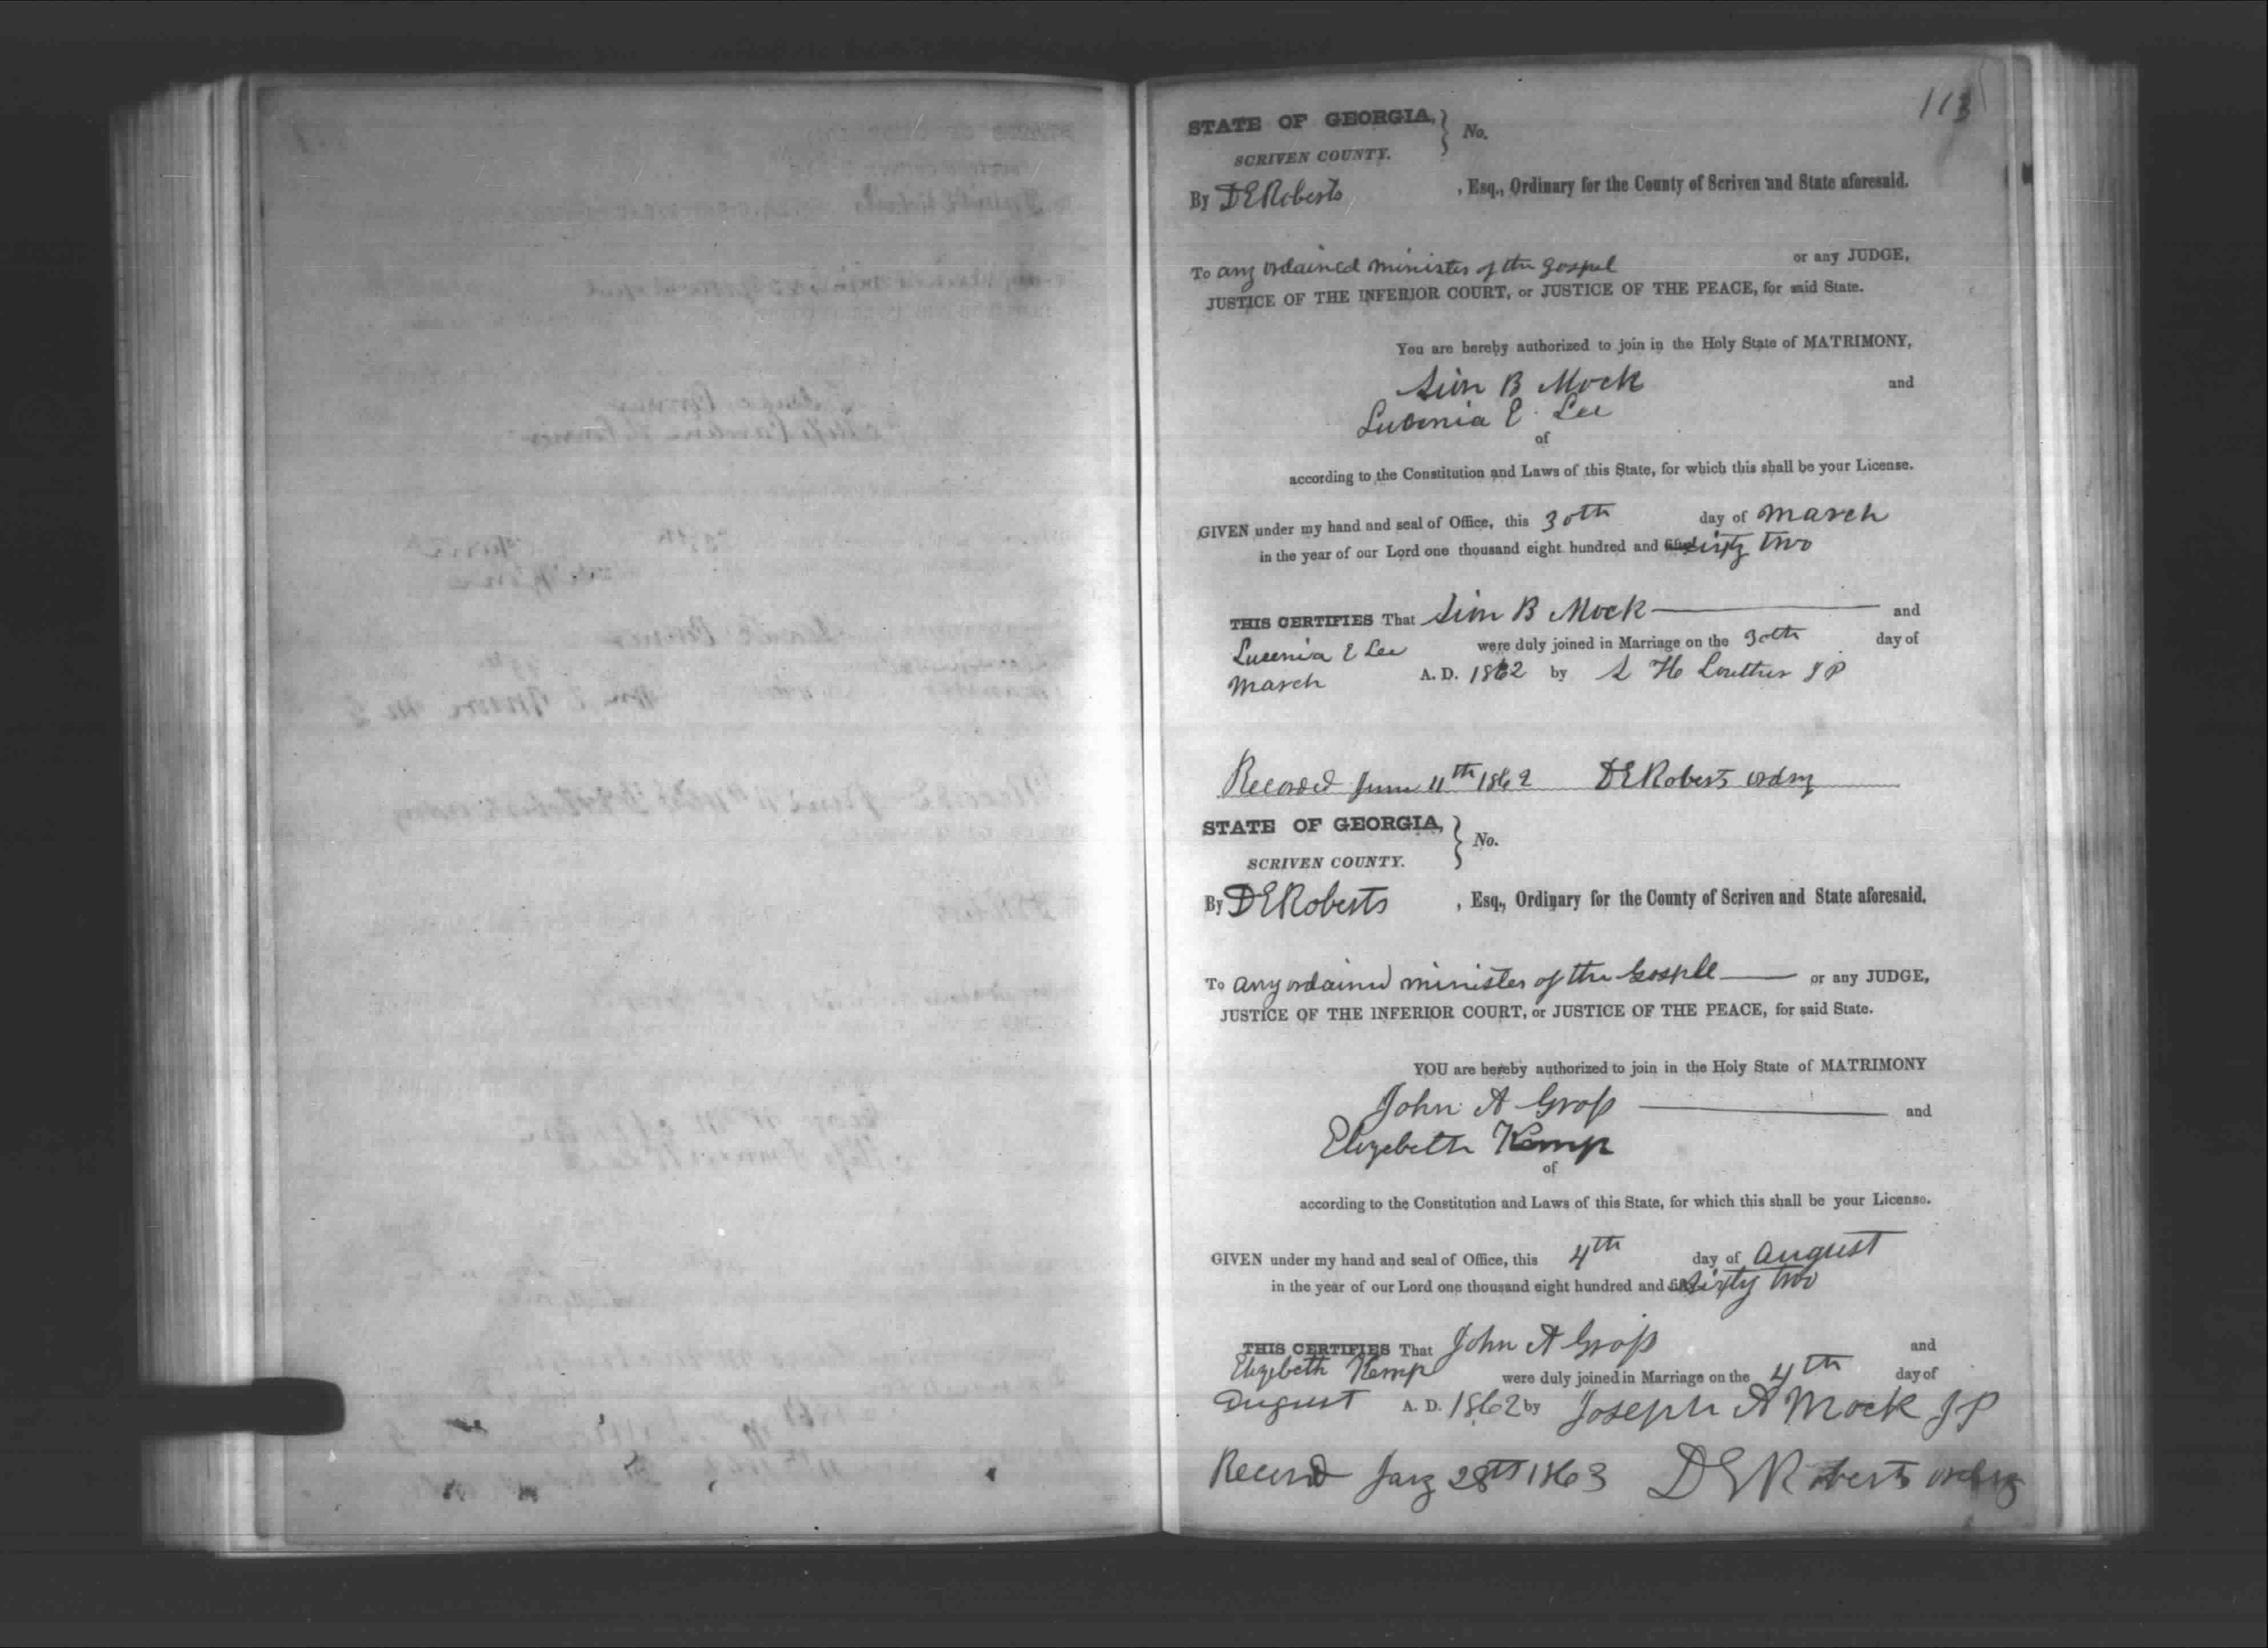 113
STATE OF GEORGIA, } No.
SCRIVEN COUNTY.
By D E Roberts , Esq., Ordinary for the County of Scriven and State aforesaid.
To any ordained minister of the gospel or any JUDGE,
JUSTICE OF THE INFERIOR COURT, or JUSTICE OF THE PEACE, for said State.
You are hereby authorized to join in the Holy State of MATRIMONY,
Sion B Mock and
Lucenia E. Lee
of
according to the Constitution and Laws of this State, for which this shall be your License.
GIVEN under my hand and seal of Office, this 30th day of March
in the year of our Lord one thousand eight hundred and sixty two
THIS CERTIFIES That Sion B Mock and
Lucenia E Lee were duly joined in Marriage on the 30th day of
March A. D. 1862 by S H Louther J P
Recorded June 11th 1862 D E Roberts ordny
STATE OF GEORGIA, } No.
SCRIVEN COUNTY.
By D E Roberts , Esq., Ordinary for the County of Scriven and State aforesaid.
To any ordained minister of the Gosple or any JUDGE,
JUSTICE OF THE INFERIOR COURT, or JUSTICE OF THE PEACE, for said State.
YOU are hereby authorized to join in the Holy State of MATRIMONY
John A Groſs and
Elizebeth Kemp
of
according to the Constitution and Laws of this State, for which this shall be your License.
GIVEN under my hand and seal of Office, this 4th day of august
in the year of our Lord one thousand eight hundred and sixty two
THIS CERTIFIES That John A Groſs and
Elizebeth Kemp were duly joined in Marriage on the 4th day of
august A. D. 1862 by Joseph A Mock J P
Record Jany 28th 1863 D E Roberts ordny